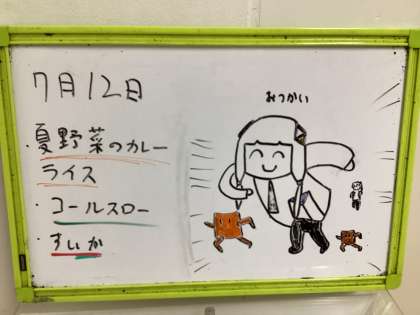 7月12日
・夏野菜のカレー
ライス
・コールスロー
・すいか
おつかい